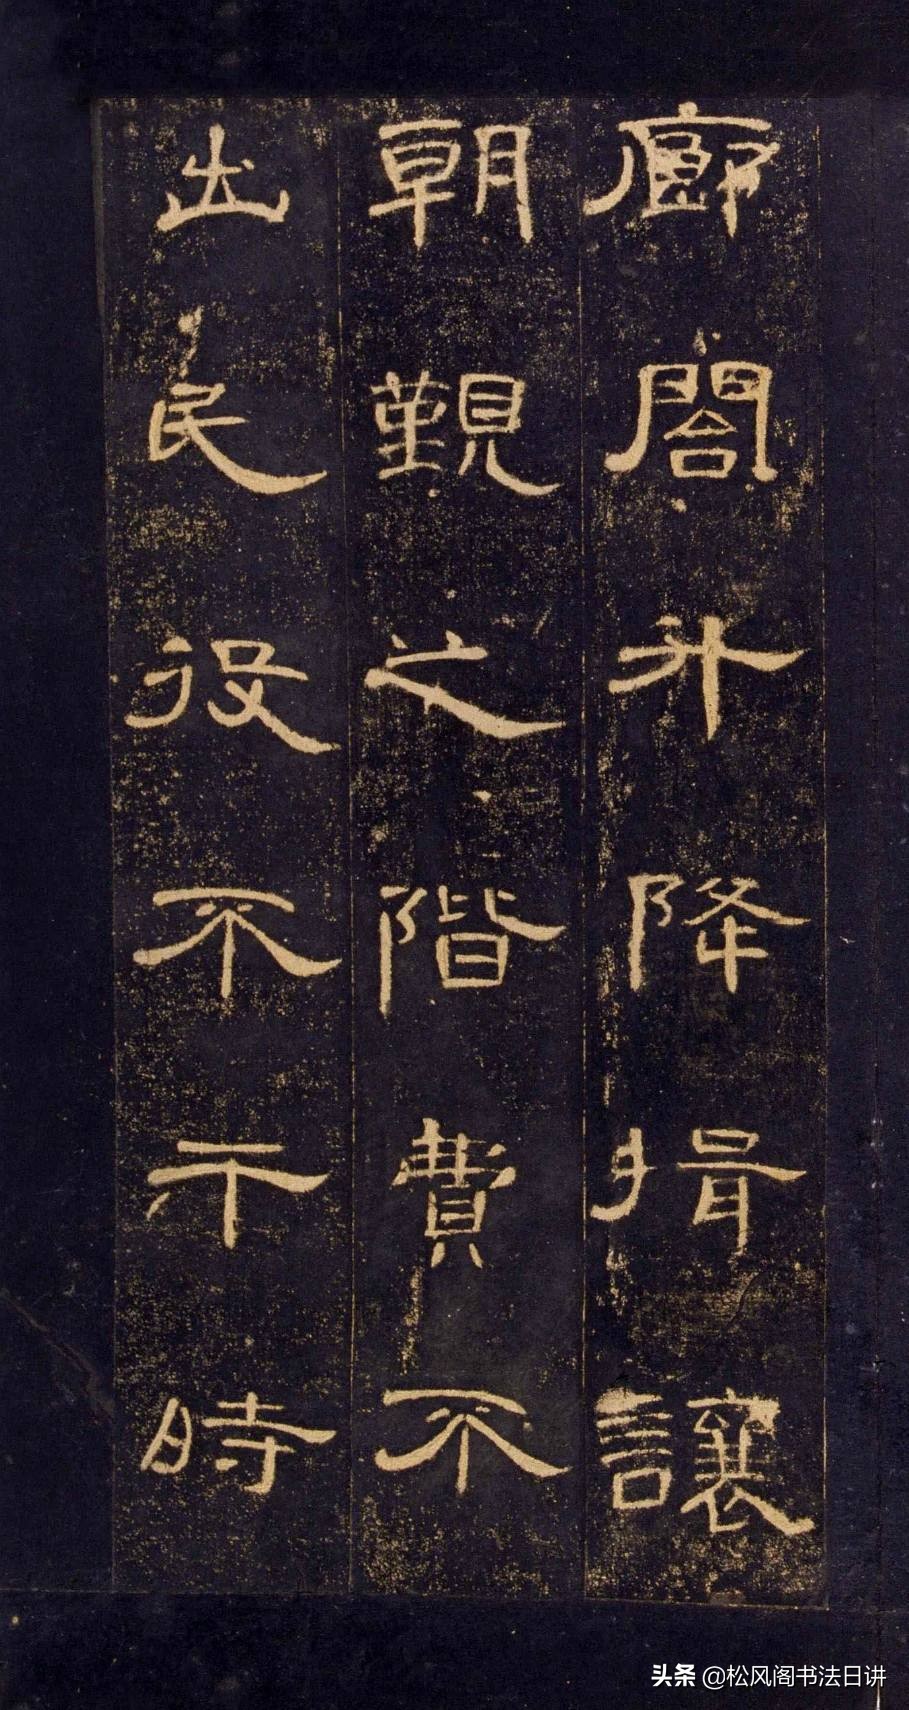 廊閣升降揖讓
朝覲之階費不
出民役不示時
头条 @松风阁书法日讲